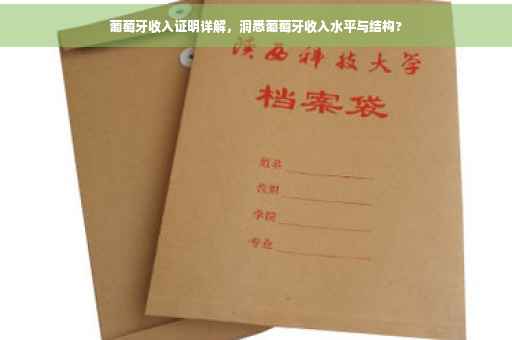 葡萄牙收入证明详解，洞悉葡萄牙收入水平与结构？
陕西科技大学
档案袋
学院
专业